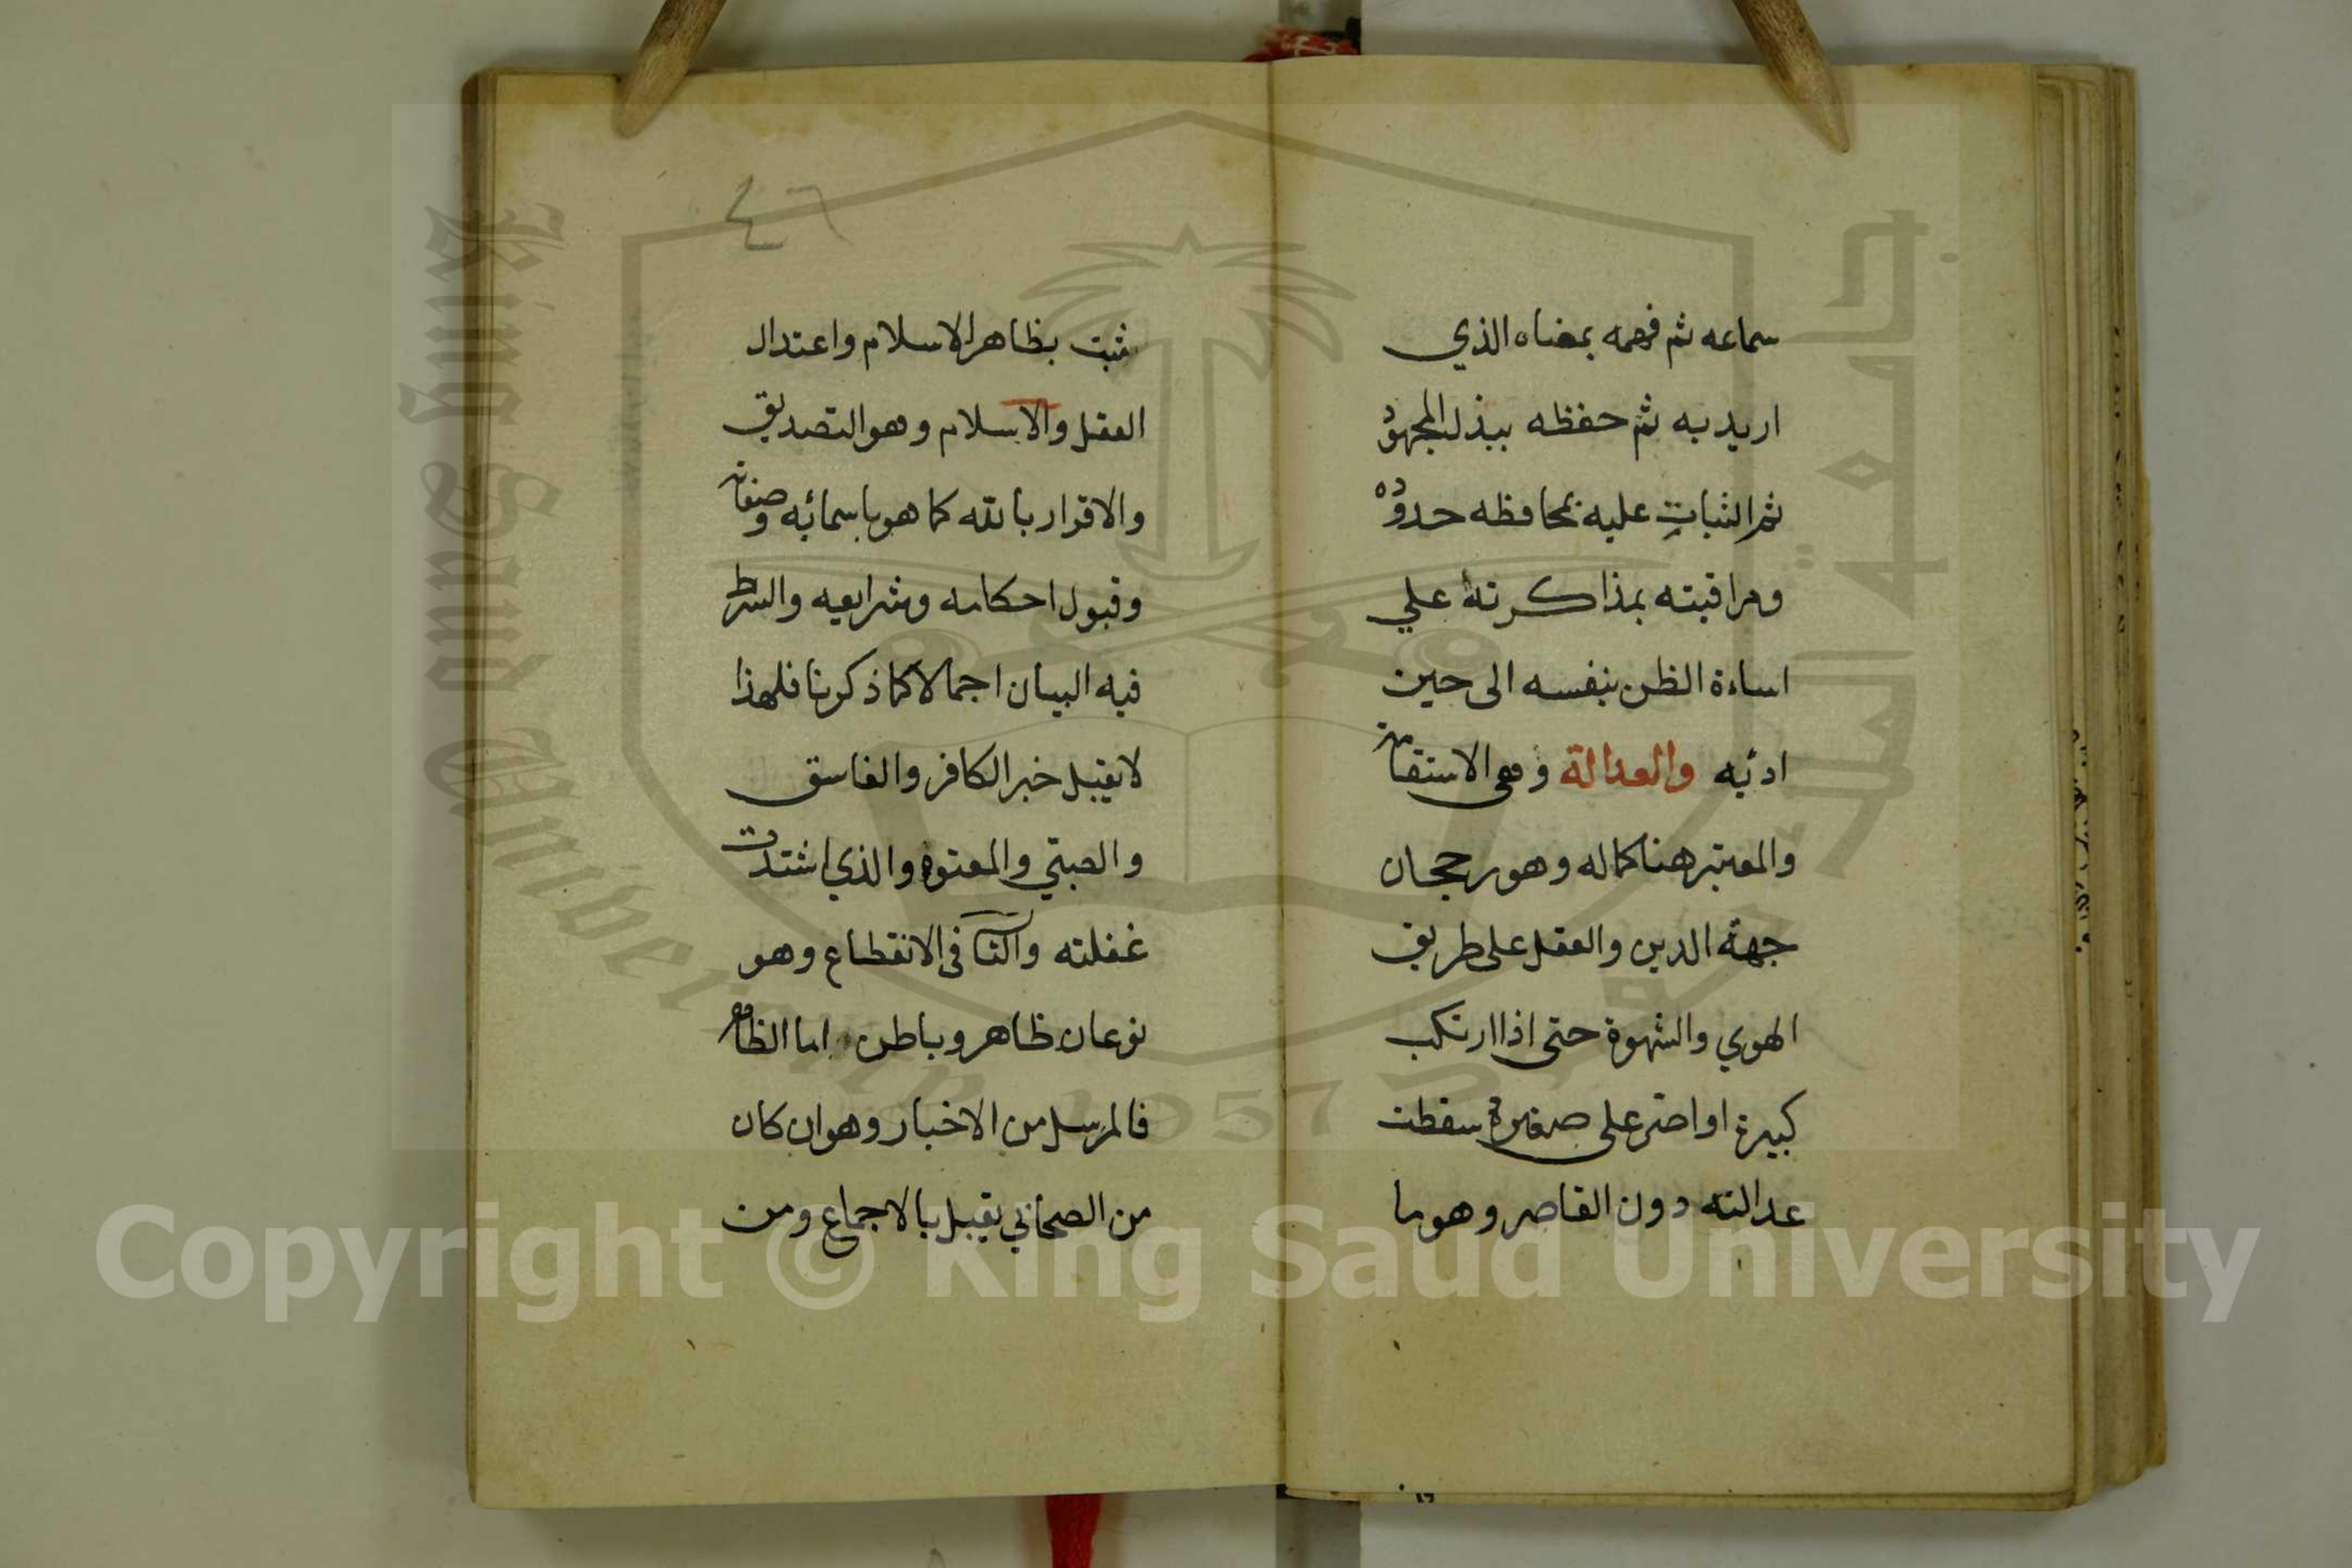 سماعه ثم فهمه بمعناه الذي
اريد به ثم حفظه ببذل المجهود
ثم الثبات عليه بمحافظه حدوده
ومراقبته بمذاكرته علي
اساءة الظن بنفسه الى حين
ادئه والعدالة وهى الاستقامة
والمعتبر هنا كماله وهو رجحان
جهة الدين والعقل على طريق
الهوي والشهوة حتى اذا ارتكب
كبيرة او اصر على صغيرة سقطت
عدالته دون القاصر وهو ما
٤٦
ثبت بظاهر الاسلام واعتدال
العقل والاسلام وهو التصديق
والاقرار بالله كما هو باسمائه وصفاته
وقبول احكامه وشرايعه والشرط
فيه البيان اجمالا كما ذكرنا فلهذا
لا يقبل خبر الكافر والفاسق
والصبي والمعتوه والذي اشتدت
غفلته والثا فى الانقطاع وهو
نوعان ظاهر وباطن اما الظاهر
فالمرسل من الاخبار وهو ان كان
من الصحابي يقبل بالاجماع ومن
King Saud University
1957
جامعة الملك سعود
Copyright © King Saud University